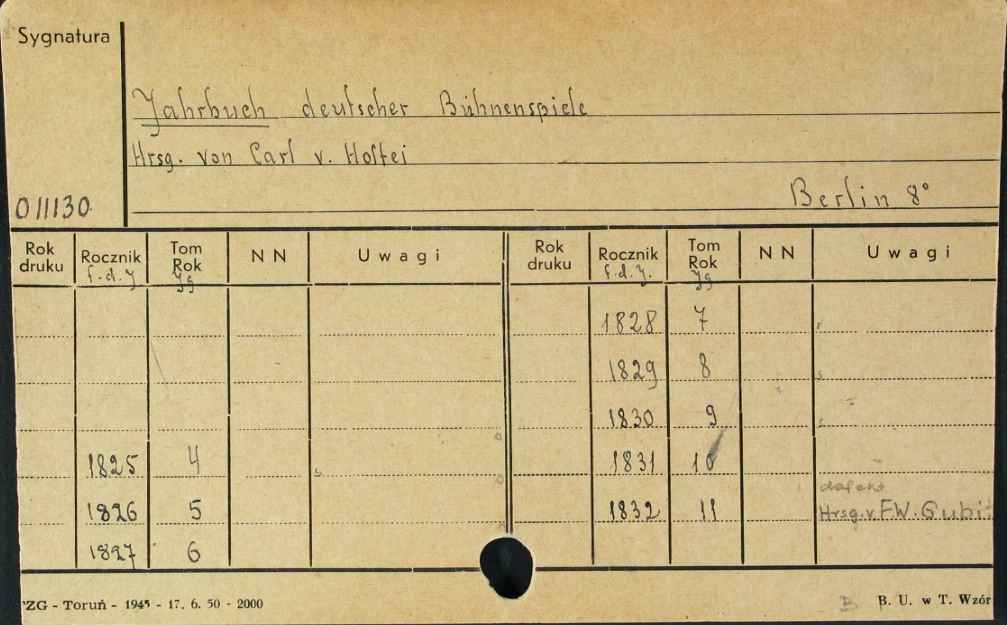 Sygnatura
Jahrbuch deutscher Bühnenspiele
Hrsg. von Carl v. Holtei
Berlin 8°
011130
Rok druku Rocznik f.d.J Tom Rok Jg NN Uwagi Rok druku Rocznik f.d.J. Tom Rok Jg NN Uwagi
1828 7
1829 8
1830 9
1825 4 1831 10
defekt
1826 5 1832 11 Hrsg. v F.W. Gubit
1827 6
ZG - Toruń - 1945 - 17. 6. 50 - 2000
B B. U. w T. Wzór